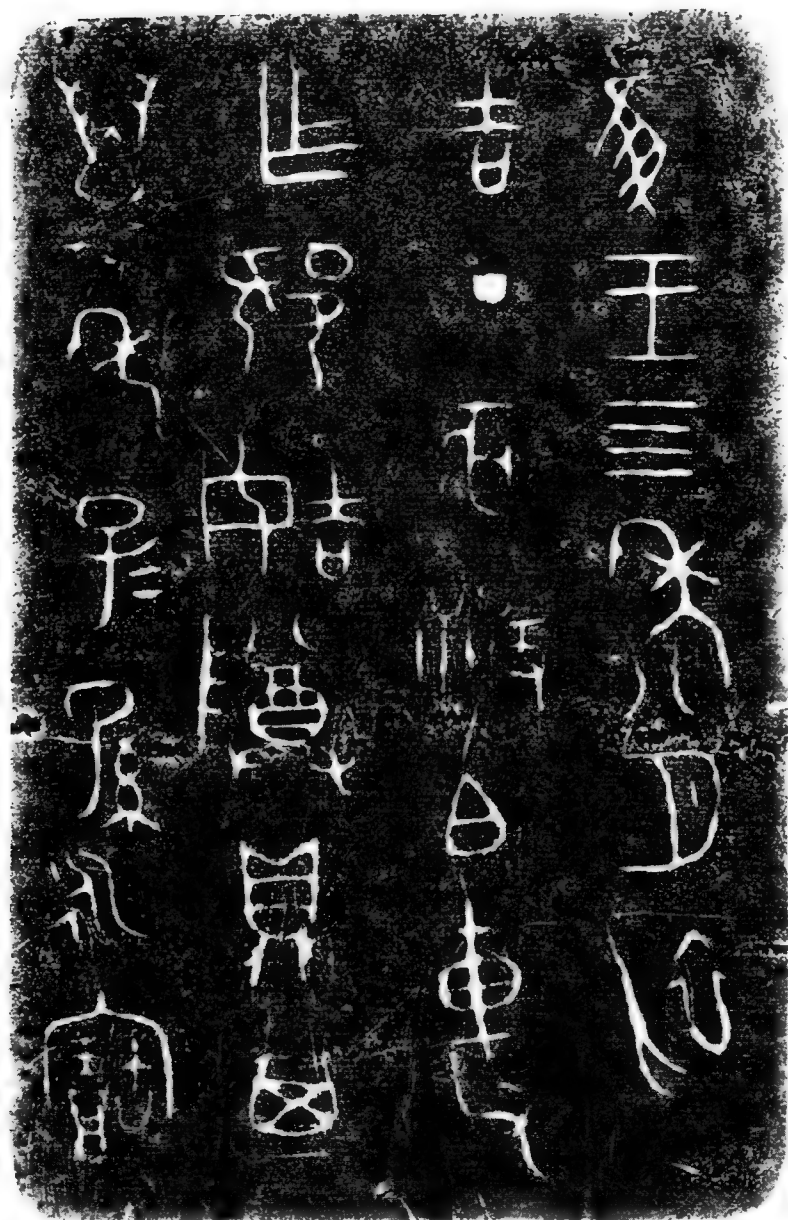 隹王四年八月初
吉丁亥散白車父
乍姞尊鼎其
萬年子=孫永寶